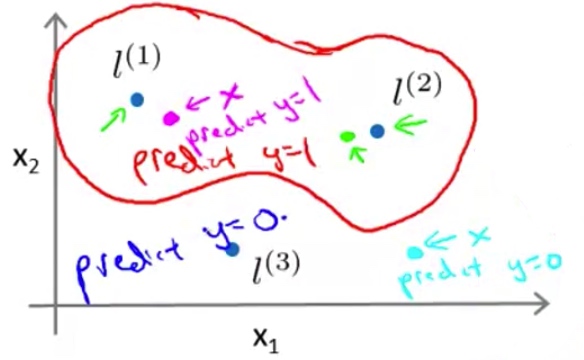 l(1)
l(2)
← x
predict y=1
predict y=1
x2
predict y=0.
l(3)
← x
predict y=0
x1